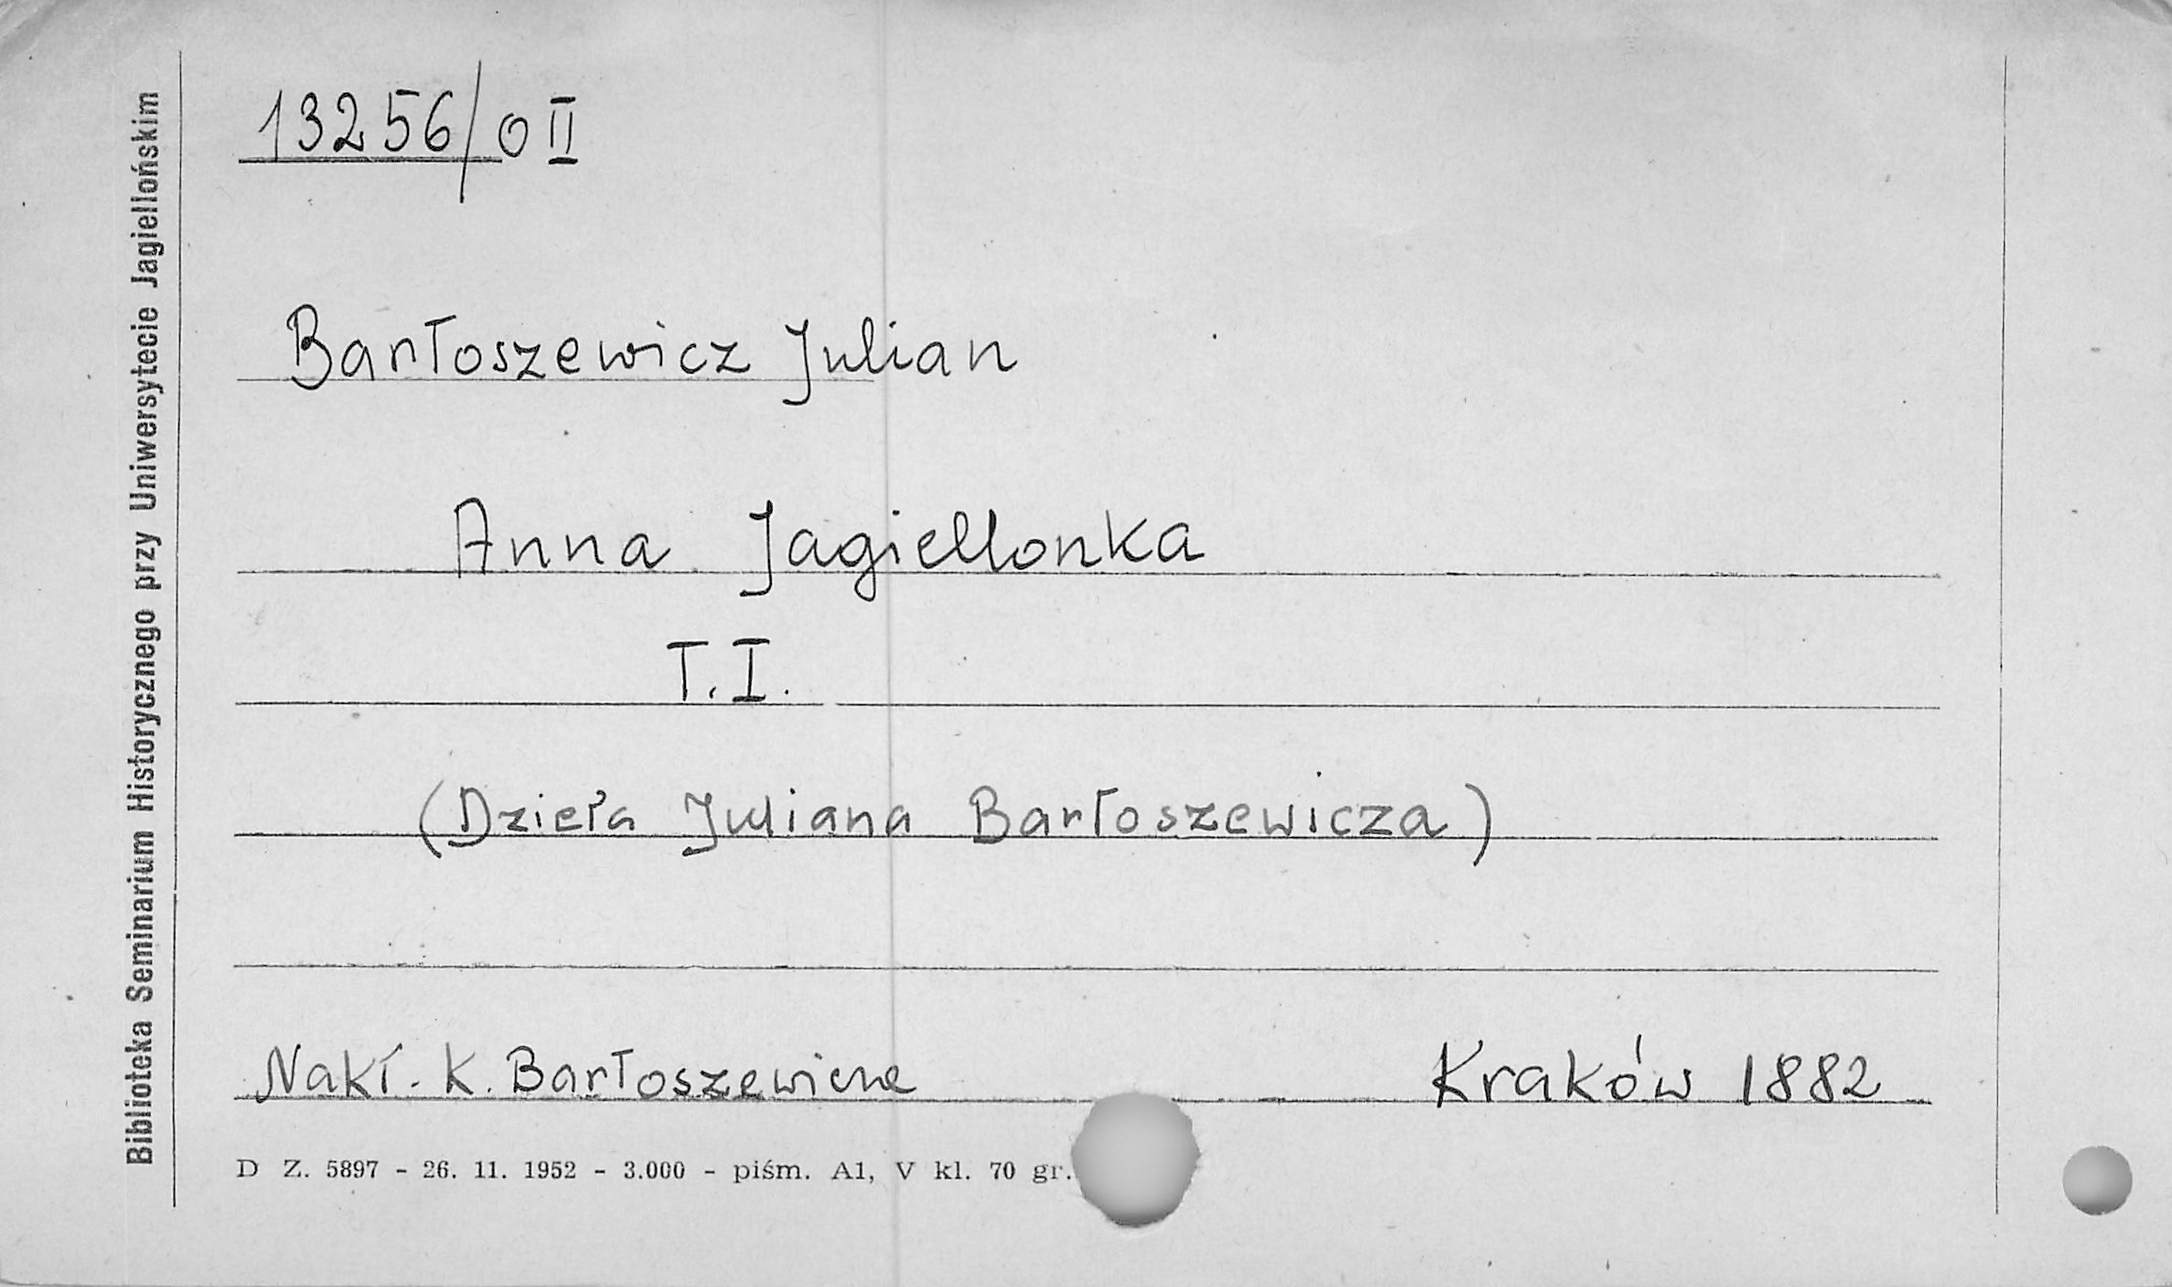 13256/o II
Bartoszewicz Julian
Anna Jagiellonka
T. I.
(Dzieła Juliana Bartoszewicza)
Nakł. K. Bartoszewicza Kraków 1882
D Z. 5897 - 26. 11. 1952 - 3.000 - piśm. A1, V kl. 70 gr.
Biblioteka Seminarium Historycznego przy Uniwersytecie Jagiellońskim